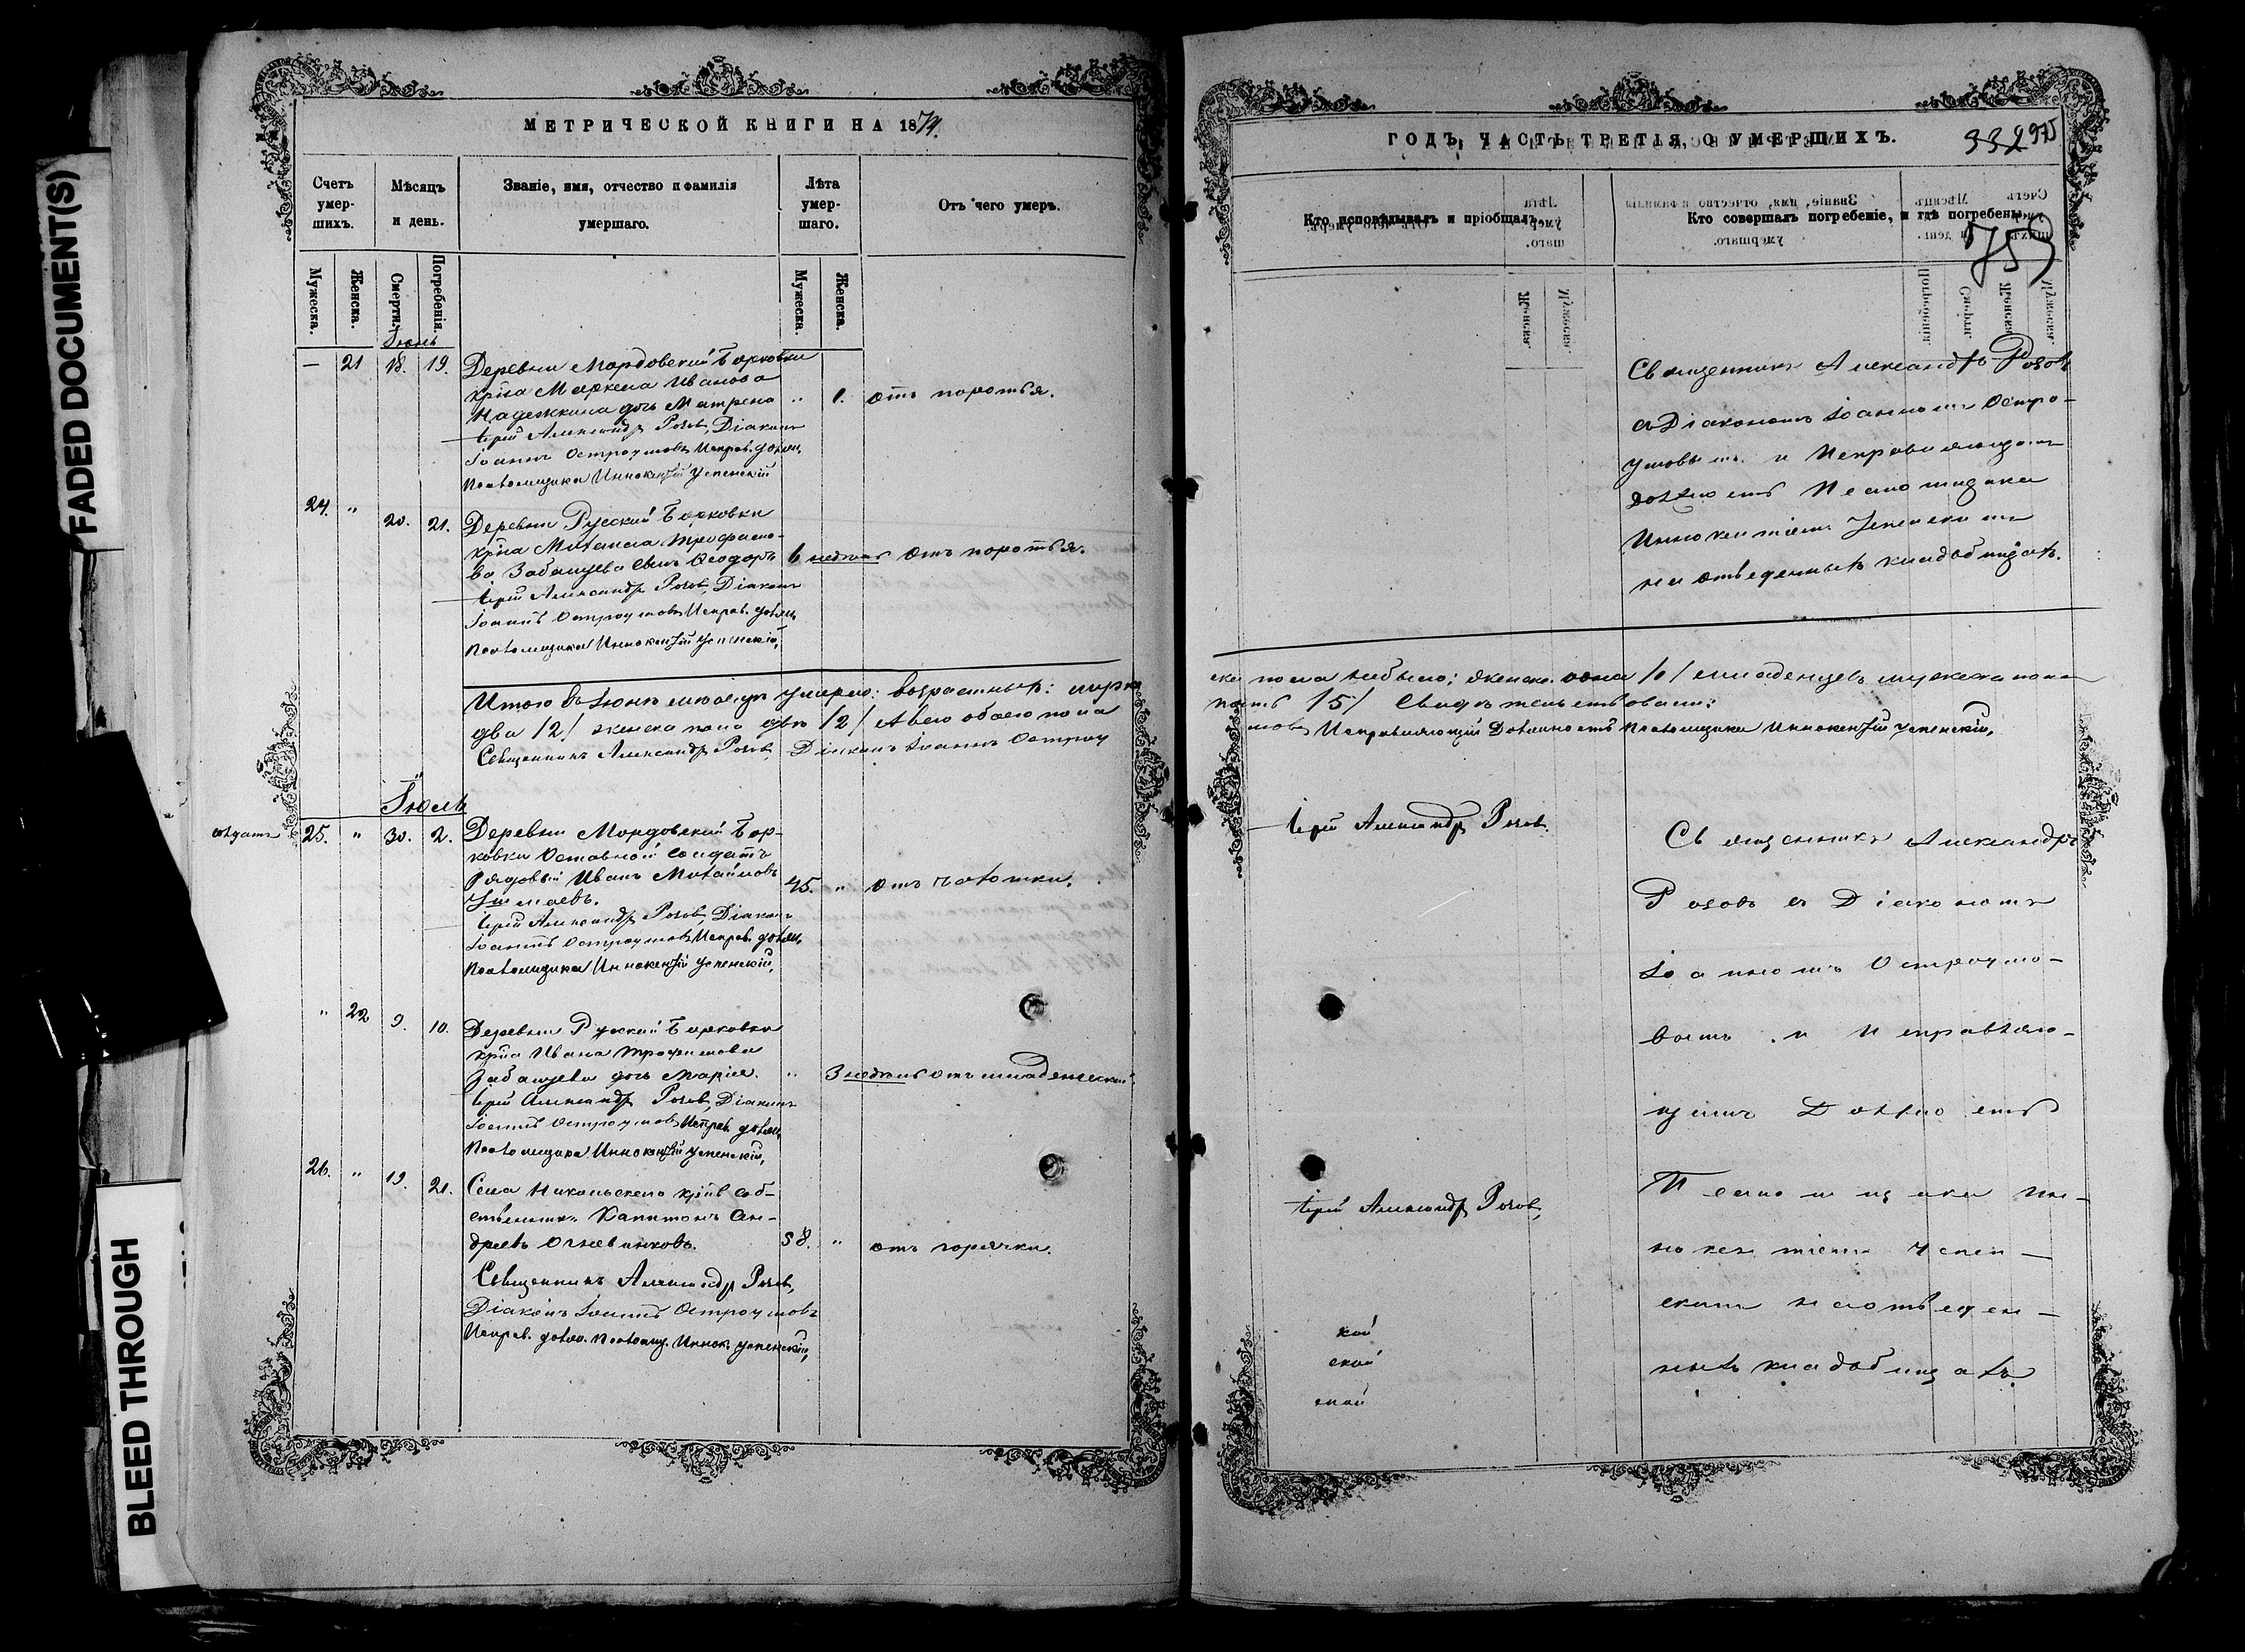 FADED DOCUMENT(S)
BLEED THROUGH
МЕТРИЧЕСКОЙ КНИГИ НА 1874.
Счетъ умер-шихъ.
Мѣсяцъ и день.
Званіе, имя, отчество и фамилія умершаго.
Лѣта умер-шаго.
Отъ чего умеръ.
Мужеска.
Женска.
Смерти.
Погребенія.
Мужеска.
Женска.
Іюнь
— 21 18. 19. Деревни Мордовской Борковки
крⷭна Маркела Иванова
Надежкина дочь Матрена " 1. отъ поноса.
Іерей Александр Розов, Діаконъ
Іоаннъ Остроумовъ Исправ. должн.
Псаломщика Иннокентій Успенскій
24. " 20. 21. Деревни Русской Борковки
крⷭна Михаила Трофимо-
ва Забалуева сынъ Ѳеодоръ 6 недѣль отъ поноса.
Іерей Александр Розов, Діаконъ
Іоаннъ Остроумовъ Исправ. должн.
Псаломщика Иннокентій Успенскій,
Итого въ Іюнѣ мѣсяцѣ умерло: возрастныхъ: мужес
два /2/ женска пола двѣ /2/ А всего обоего пола
Священникъ Александр Розов, Діаконъ Іоаннъ Остроу
Іюль
солдатъ 25. " 30. 2. Деревни Мордовской Бор-
ковки Отставной солдатъ
Рядовый Иванъ Михайловъ 45. " отъ чахотки.
Іерей Александр Розов, Діаконъ
Іоаннъ Остроумовъ Исправ. должн.
Псаломщика Иннокентій Успенскій,
" 22 9. 10. Деревни Русской Борковки
крⷭна Ивана Трофимова
Забалуева дочь Марія. " 3 недѣль отъ младенческой
Іерей Александр Розов, Діаконъ
Іоаннъ Остроумовъ Исправ. должн.
Псаломщика Иннокентій Успенскій,
26. " 19. 21. Села Никольскаго крⷭнъ соб-
ственникъ Капитонъ Ан-
дреевъ 58. " отъ горячки.
Священникъ Александр Розов,
Діаконъ Іоаннъ Остроумовъ
Исправ. должн. Псаломщ. Иннок. Успенскій,
ГОДЪ, ЧАСТЬ ТРЕТІЯ, О УМЕРШИХЪ.
Кто исповѣдывалъ и пріобщалъ.
Кто совершалъ погребеніе, и гдѣ погребены.
753
Священникъ Александръ Розовъ
съ Діакономъ Іоанномъ Остро-
умовымъ и Исправляющимъ
должность Псаломщика
Иннокентіемъ Успенскимъ
на отведенныхъ кладбищахъ.
ска пола небыло; женска /0/ младенцевъ мужеска пола
пять /5/ Свидѣтельствовали:
мовъ Исправляющій Должность Псаломщика Иннокентій Успенскій,
Іерей Александр Розов.
Священникъ Александръ
Розовъ съ Діакономъ
Іоанномъ Остроумо-
вымъ и Исправляю-
щимъ Должность
Псаломщика Ин-
нокентіемъ Успен-
скимъ на отведен-
ныхъ кладбищахъ
Іерей Александр Розов,
кой
ской
ской